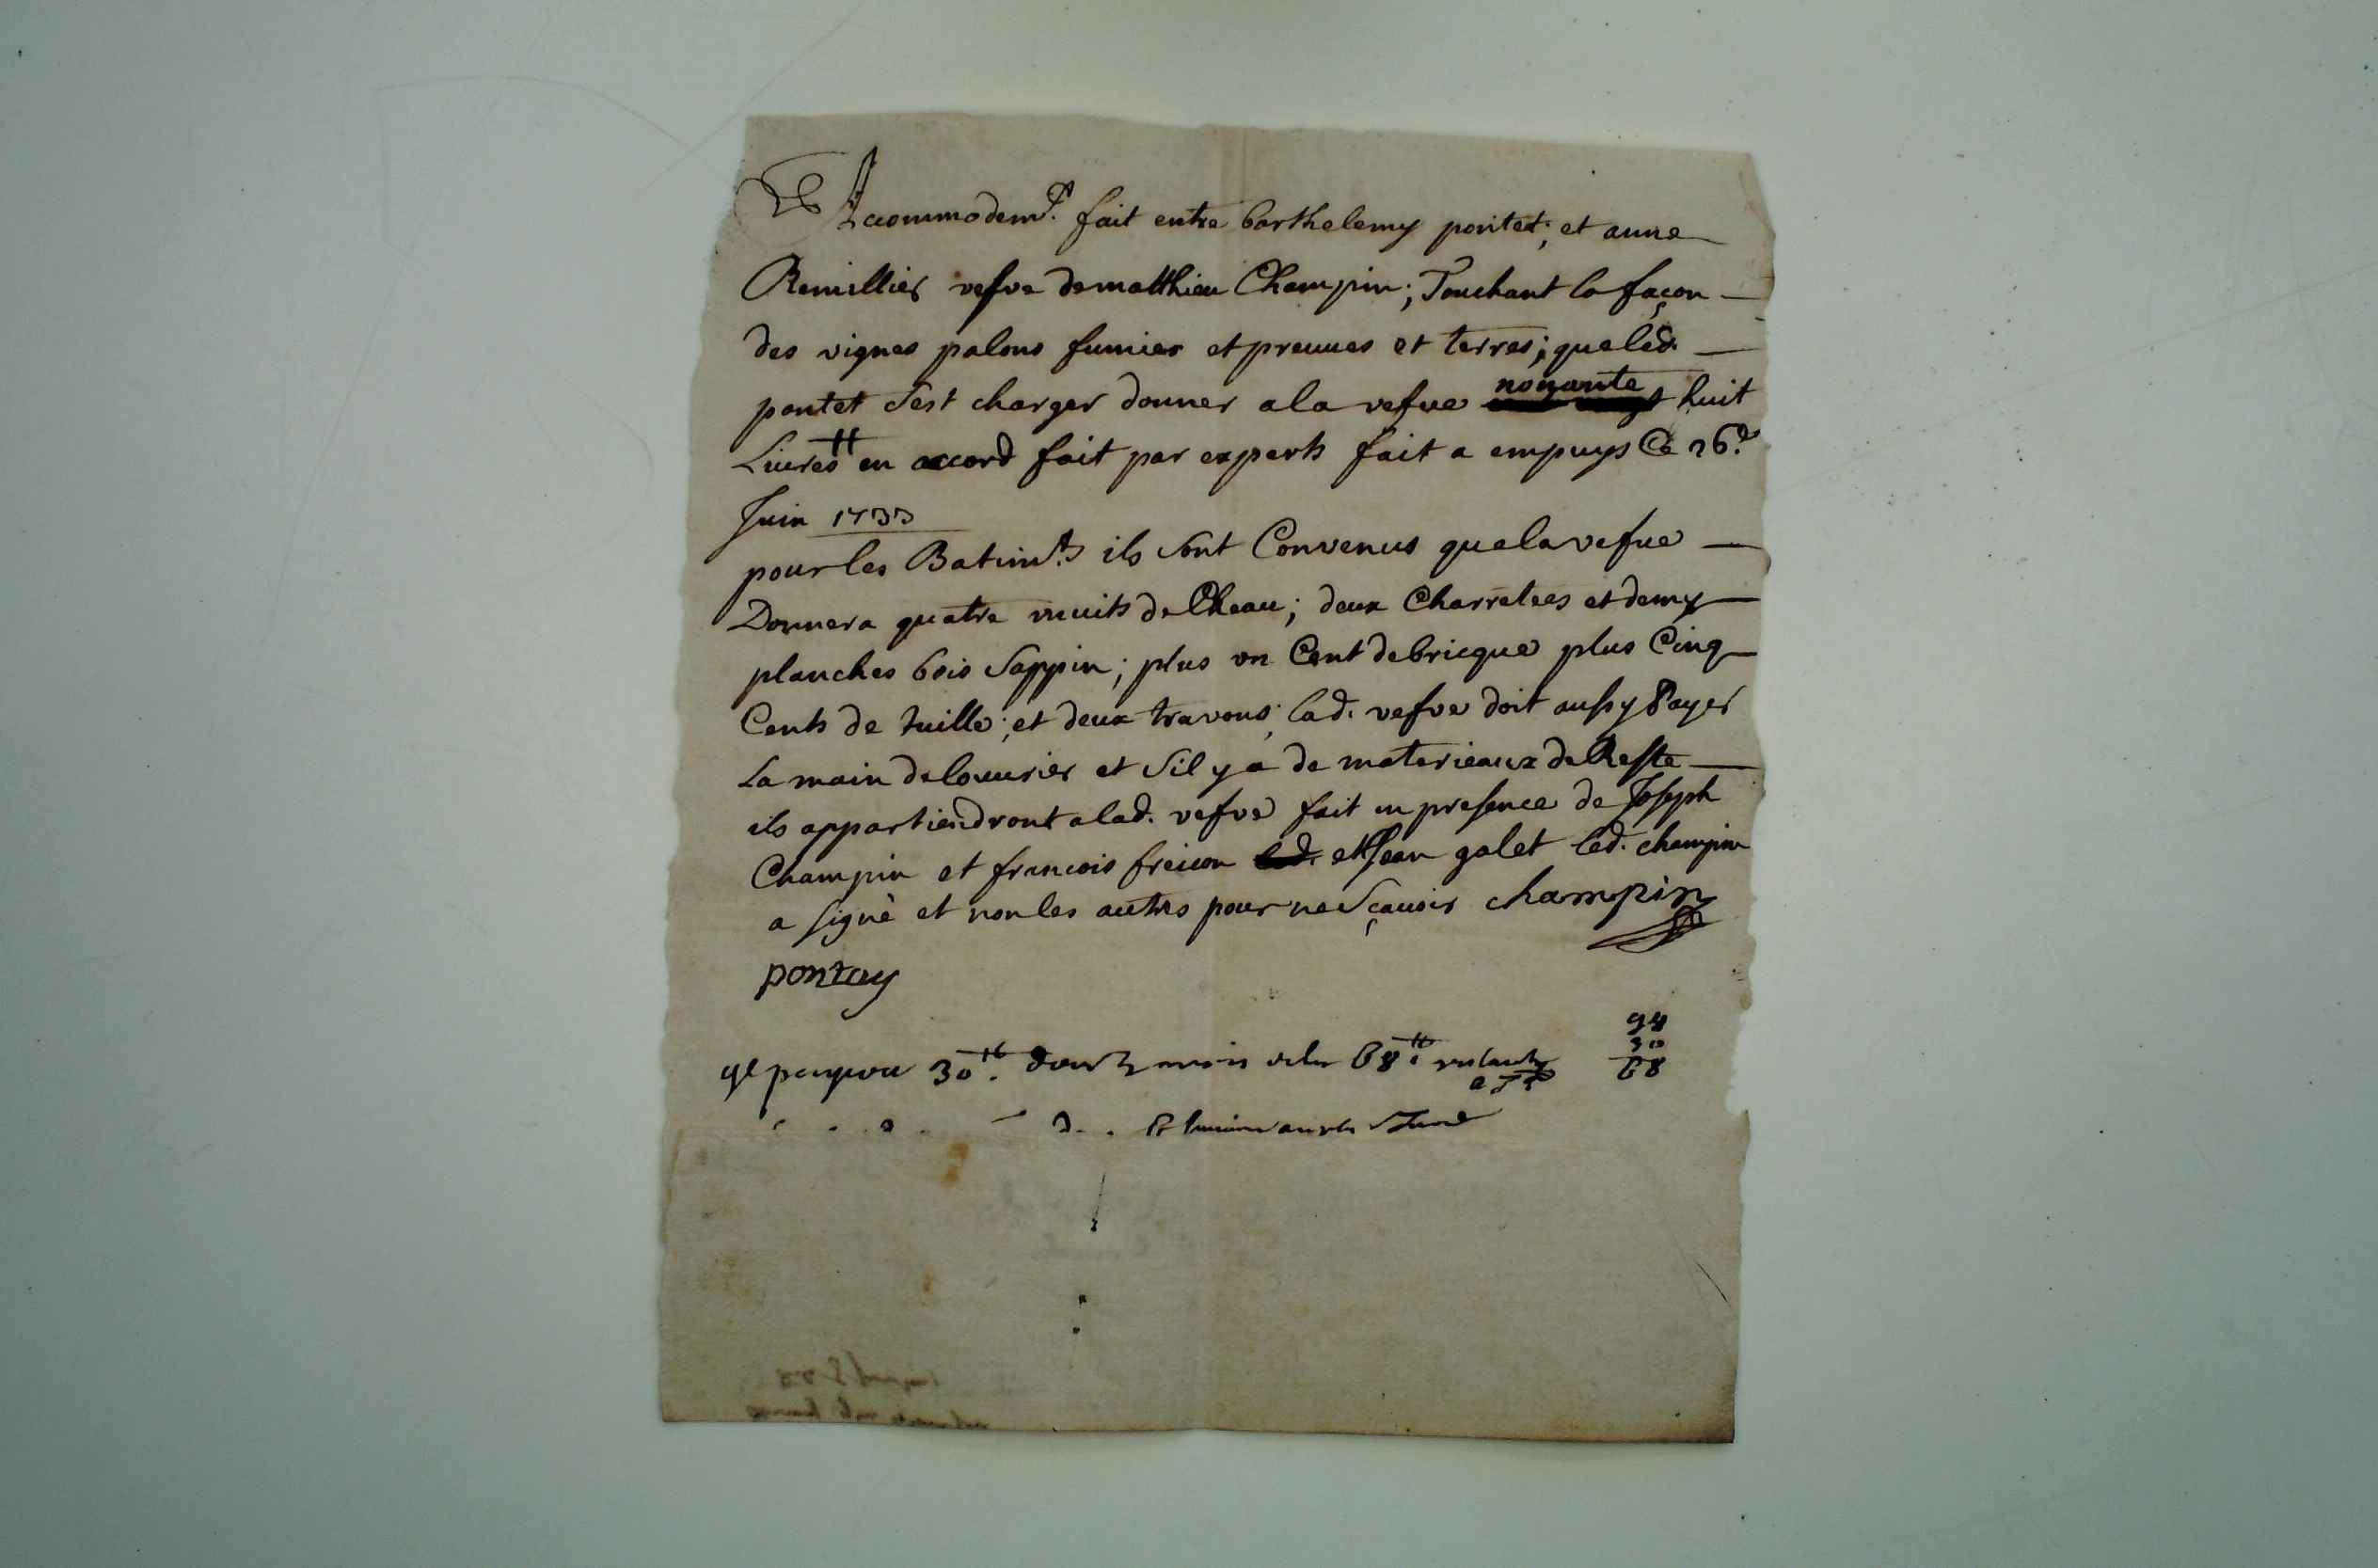 Accommodem.t fait entre barthelemy pontet; et anne
Remillier vefve de matthieu Champin; Touchant la façon
des vignes palons fumier et preuues et terres; que led.
pontet s'est charger donner a la vefue nonante huit
Liures tt en accord fait par experts fait a empuys Ce 26.e
Juin 1733
pour les Batim.ts ils sont Convenus que la vefue
Donnera quatre muits de Cheau; deux Charretees et demy
planches bois sappin; plus un Cent de bricque plus Cinq
Cents de tuille; et deux travons; lad. vefve doit aussy Payer
La main de louurier et s'il y a de materieaux de Reste
ils appartiendront a lad. vefve fait en presence de Joseph
Champin et francois freicon et Jean galet led. champin
a signè et non les autres pour ne sçauoir champin
pontey
98
30
68
30 tt. 68 tt. restants